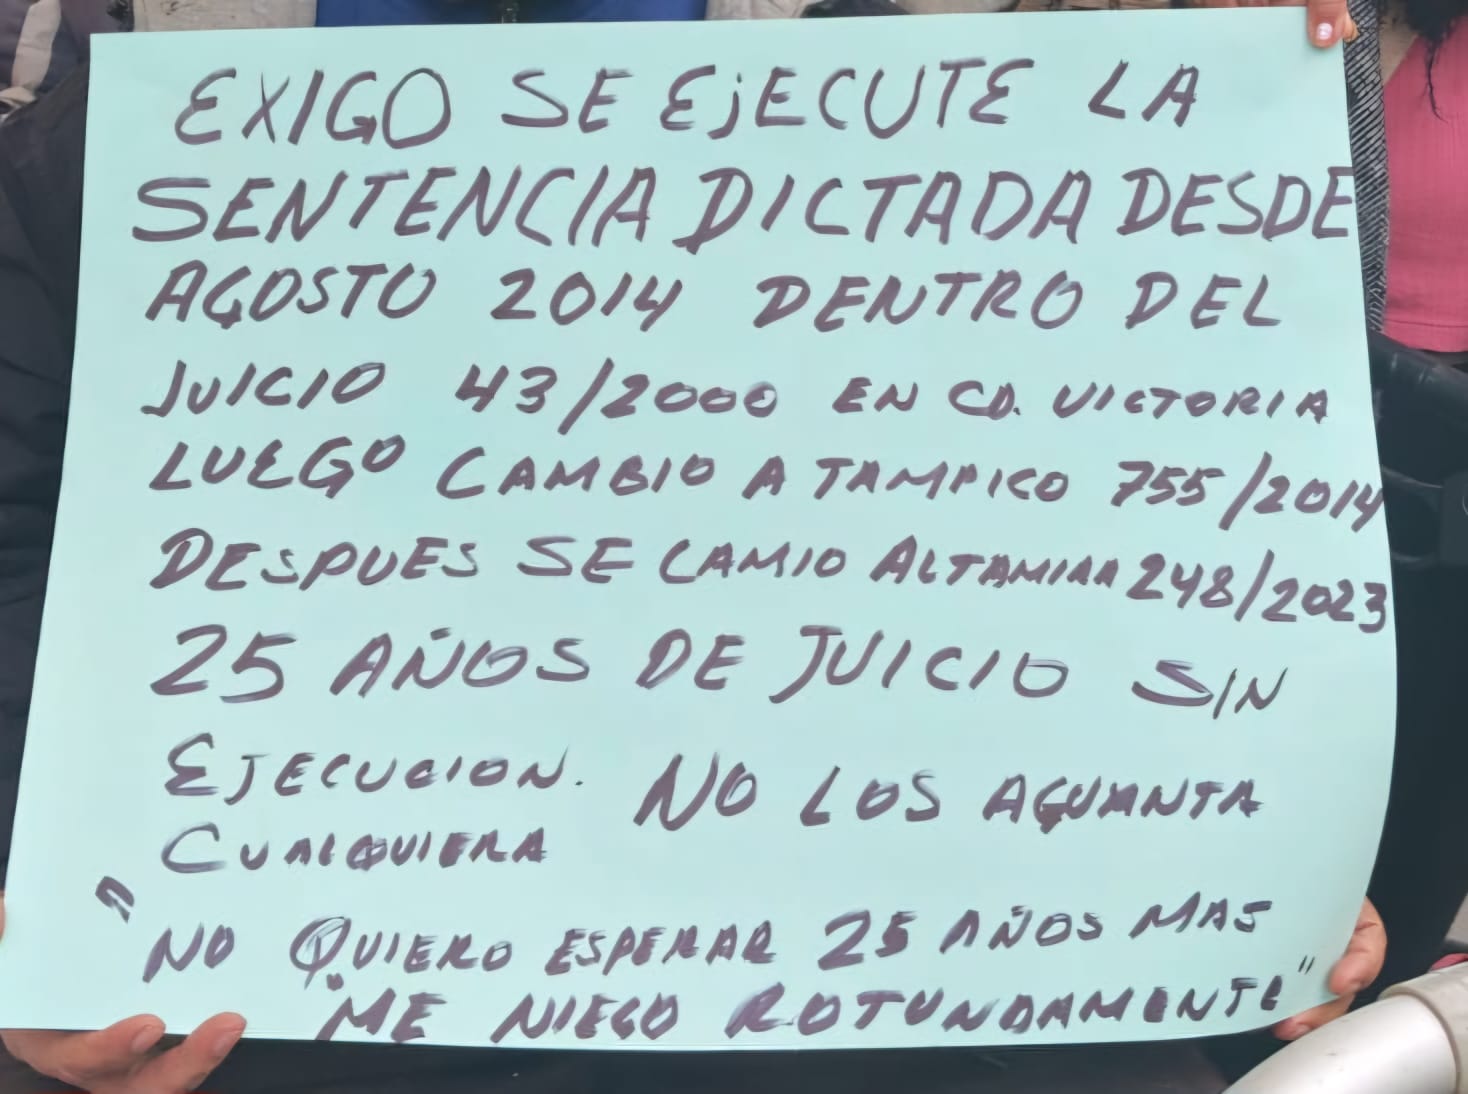 EXIGO SE EJECUTE LA
SENTENCIA DICTADA DESDE
AGOSTO 2014 DENTRO DEL
JUICIO 43/2000 EN CD. VICTORIA
LUEGO CAMBIO A TAMPICO 755/2014
DESPUES SE CAMIO ALTAMIRA 248/2023
25 AÑOS DE JUICIO SIN
EJECUCION. NO LOS AGUANTA
CUALQUIERA
"NO QUIERO ESPERAR 25 AÑOS MAS
"ME NIEGO ROTUNDAMENTE"